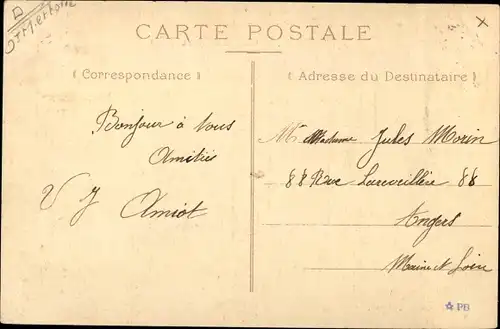 CARTE POSTALE
( Correspondance )
( Adresse du Destinataire )
Bonjour à vous
Amitiés
V J Amiot
Madame Jules Morin
88 Rue Lareveillère 88
Angers
Maine et Loire
PB